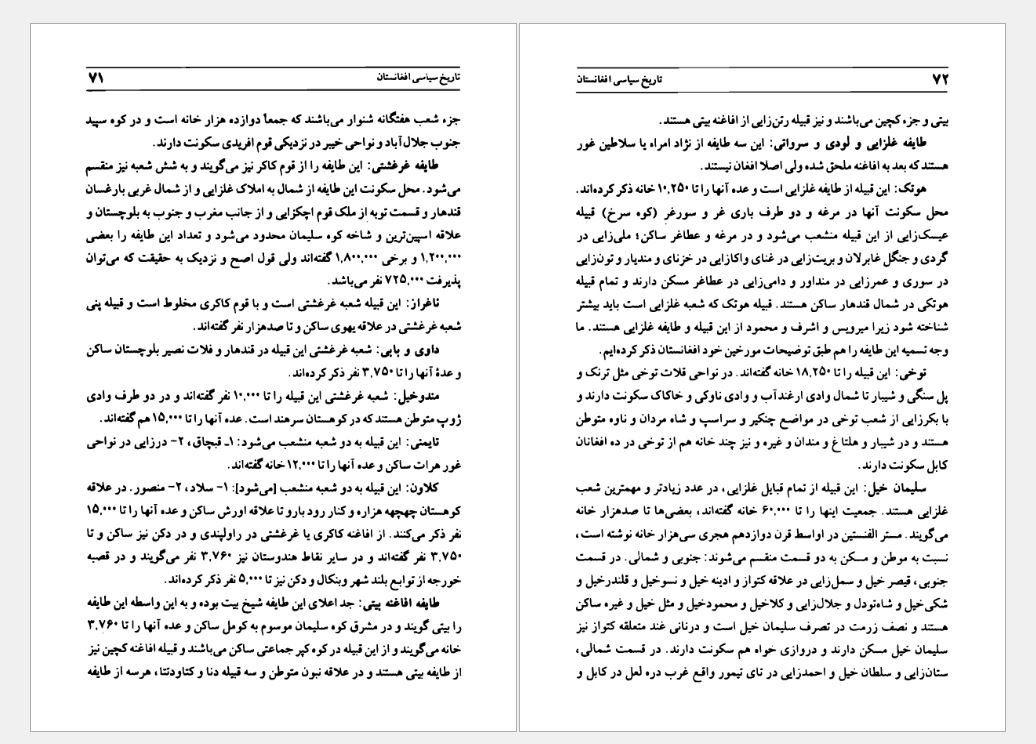 تاریخ سیاسی افغانستان ۷۱
جزء شعب هفتگانه شنوار می‌باشند که جمعاً دوازده هزار خانه است و در کوه سپید
جنوب جلال‌آباد و نواحی خیبر در نزدیکی قوم افریدی سکونت دارند.
طایفه غرغشتی: این طایفه را از قوم کاکر نیز می‌گویند و به شش شعبه نیز منقسم
می‌شود. محل سکونت این طایفه از شمال به املاک غلزایی و از شمال غربی بارغسان
قندهار و قسمت توبه از ملک قوم اچکزایی و از جانب مغرب و جنوب به بلوچستان و
علاقه اسپین‌ترین و شاخه کوه سلیمان محدود می‌شود و تعداد این طایفه را بعضی
۱,۲۰۰,۰۰۰ و برخی ۱,۸۰۰,۰۰۰ گفته‌اند ولی قول اصح و نزدیک به حقیقت که می‌توان
پذیرفت ۷۲۵,۰۰۰ نفر می‌باشد.
ناغراز: این قبیله شعبه غرغشتی است و با قوم کاکری مخلوط است و قبیله پنی
شعبه غرغشتی در علاقه یهوی ساکن و تا صدهزار نفر گفته‌اند.
داوی و بابی: شعبه غرغشتی این قبیله در قندهار و قلات نصیر بلوچستان ساکن
و عدهٔ آنها را تا ۳,۷۵۰ نفر ذکر کرده‌اند.
مندوخیل: شعبه غرغشتی این قبیله را تا ۱۰,۰۰۰ نفر گفته‌اند و در دو طرف وادی
ژوپ متوطن هستند که در کوهستان سرهند است. عده آنها را تا ۱۵,۰۰۰ هم گفته‌اند.
تایمنی: این قبیله به دو شعبه منشعب می‌شود: ۱ـ قبچاق، ۲- درزایی در نواحی
غور هرات ساکن و عده آنها را تا ۱۲,۰۰۰ خانه گفته‌اند.
کلاون: این قبیله به دو شعبه منشعب [می‌شود]: ۱- سلاد، ۲- منصور. در علاقه
کوهستان چهچهه هزاره و کنار رود بارو تا علاقه اورش ساکن و عده آنها را تا ۱۵,۰۰۰
نفر ذکر می‌کنند. از افاغنه کاکری یا غرغشتی در راولپندی و در دکن نیز ساکن و تا
۳,۷۵۰ نفر گفته‌اند و در سایر نقاط هندوستان نیز ۳,۷۶۰ نفر می‌گویند و در قصبه
خورجه از توابع بلند شهر وبنکال و دکن نیز تا ۵,۰۰۰ نفر ذکر کرده‌اند.
طایفه افاغنه بیتی: جد اعلای این طایفه شیخ بیت بوده و به این واسطه این طایفه
را بیتی گویند و در مشرق کوه سلیمان موسوم به کومل ساکن و عده آنها را تا ۳,۷۶۰
خانه می‌گویند و از این قبیله در کوه کپر جماعتی ساکن می‌باشند و قبیله افاغنه کچین نیز
از طایفه بیتی هستند و در علاقه نبون متوطن و سه قبیله دنا و کتاودتتا، هرسه از طایفه
تاریخ سیاسی افغانستان ۷۲
بیتی و جزء کچین می‌باشند و نیز قبیله رتن‌زایی از افاغنه بیتی هستند.
طایفه غلزایی و لودی و سروانی: این سه طایفه از نژاد امراء یا سلاطین غور
هستند که بعد به افاغنه ملحق شده ولی اصلا افغان نیستند.
هوتک: این قبیله از طایفه غلزایی است و عده آنها را تا ۱۰,۲۵۰ خانه ذکر کرده‌اند.
محل سکونت آنها در مرغه و دو طرف باری غر و سورغر (کوه سرخ) قبیله
عیسک‌زایی از این قبیله منشعب می‌شود و در مرغه و عطاغر ساکن؛ ملی‌زایی در
گردی و جنگل غابرلان و بریت‌زایی در غنای واکازایی در خزنای و مندیار و تون‌زایی
در سوری و عمرزایی در منداور و دامی‌زایی در عطاغر مسکن دارند و تمام قبیله
هوتکی در شمال قندهار ساکن هستند. قبیله هوتک که شعبه غلزایی است باید بیشتر
شناخته شود زیرا میرویس و اشرف و محمود از این قبیله و طایفه غلزایی هستند. ما
وجه تسمیه این طایفه را هم طبق توضیحات مورخین خود افغانستان ذکر کرده‌ایم.
توخی: این قبیله را تا ۱۸,۲۵۰ خانه گفته‌اند. در نواحی قلات توخی مثل ترنک و
پل سنگی و شیبار تا شمال وادی ارغندآب و وادی ناوکی و خاکاک سکونت دارند و
با بکرزایی از شعب توخی در مواضع چنکیر و سراسپ و شاه مردان و ناوه متوطن
هستند و در شیبار و هلتاغ و مندان و غیره و نیز چند خانه هم از توخی در ده افغانان
کابل سکونت دارند.
سلیمان خیل: این قبیله از تمام قبایل غلزایی، در عدد زیادتر و مهمترین شعب
غلزایی هستند. جمعیت اینها را تا ۶۰,۰۰۰ خانه گفته‌اند، بعضی‌ها تا صدهزار خانه
می‌گویند. مستر الفنستین در اواسط قرن دوازدهم هجری سی‌هزار خانه نوشته است،
نسبت به موطن و مسکن به دو قسمت منقسم می‌شوند: جنوبی و شمالی. در قسمت
جنوبی، قیصر خیل و سمل‌زایی در علاقه کتواز و ادینه خیل و نسوخیل و قلندرخیل و
شکی‌خیل و شاه‌تودل و جلال‌زایی و کلاخیل و محمودخیل و مثل خیل و غیره ساکن
هستند و نصف زرمت در تصرف سلیمان خیل است و درنانی غند متعلقه کتواز نیز
سلیمان خیل مسکن دارند و دروازی خواه هم سکونت دارند. در قسمت شمالی،
ستان‌زایی و سلطان خیل و احمدزایی در تای تیمور واقع غرب دره لعل در کابل و